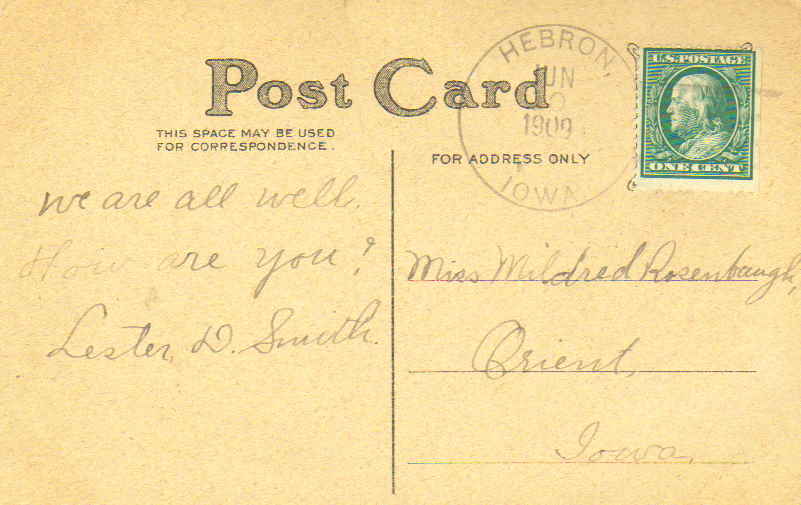 Post Card
THIS SPACE MAY BE USED
FOR CORRESPONDENCE.
FOR ADDRESS ONLY
HEBRON,
JUN
2
1909
IOWA
U.S. POSTAGE
ONE CENT
we are all well.
How are you?
Lester D. Smith.
Miss Mildred Rosenbaugh,
Orient,
Iowa,